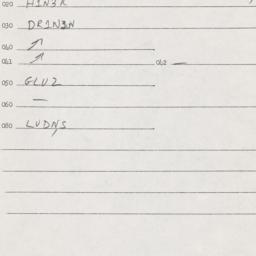 020 H1N3R
030 DR1N3N
040
041 042 —
050 GLU2
060 —
080 LVDNS